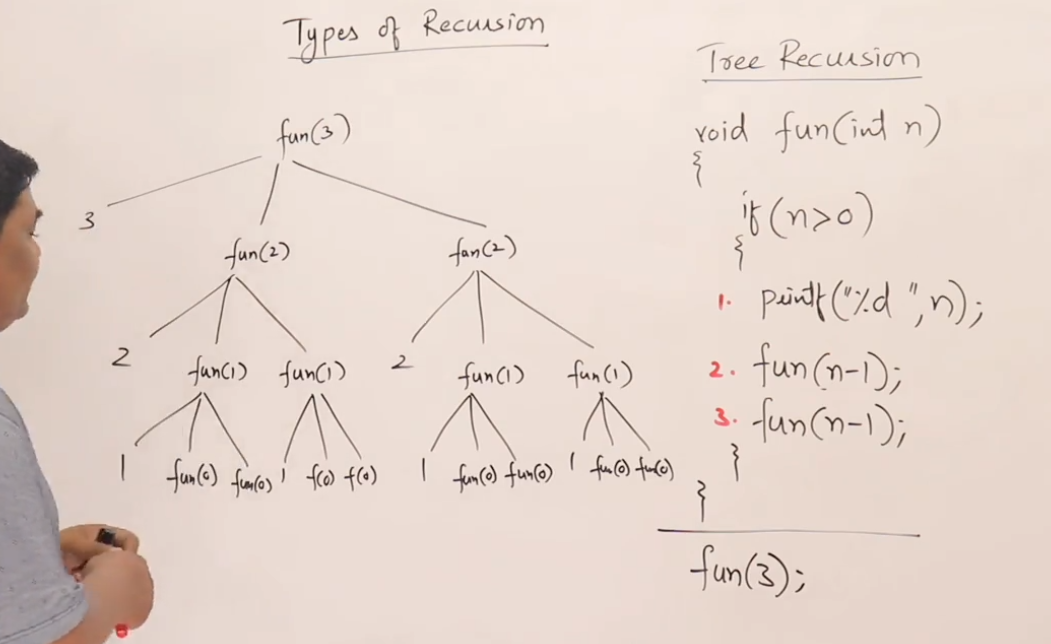 Types of Recursion
fun(3)
3
fun(2) fun(2)
2 fun(1) fun(1) 2 fun(1) fun(1)
1 fun(0) fun(0) 1 f(0) f(0) 1 fun(0) fun(0) 1 fun(0) fun(0)
Tree Recursion
void fun(int n)
{
if(n>0)
{
1. printf("%d ",n);
2. fun(n-1);
3. fun(n-1);
}
}
fun(3);